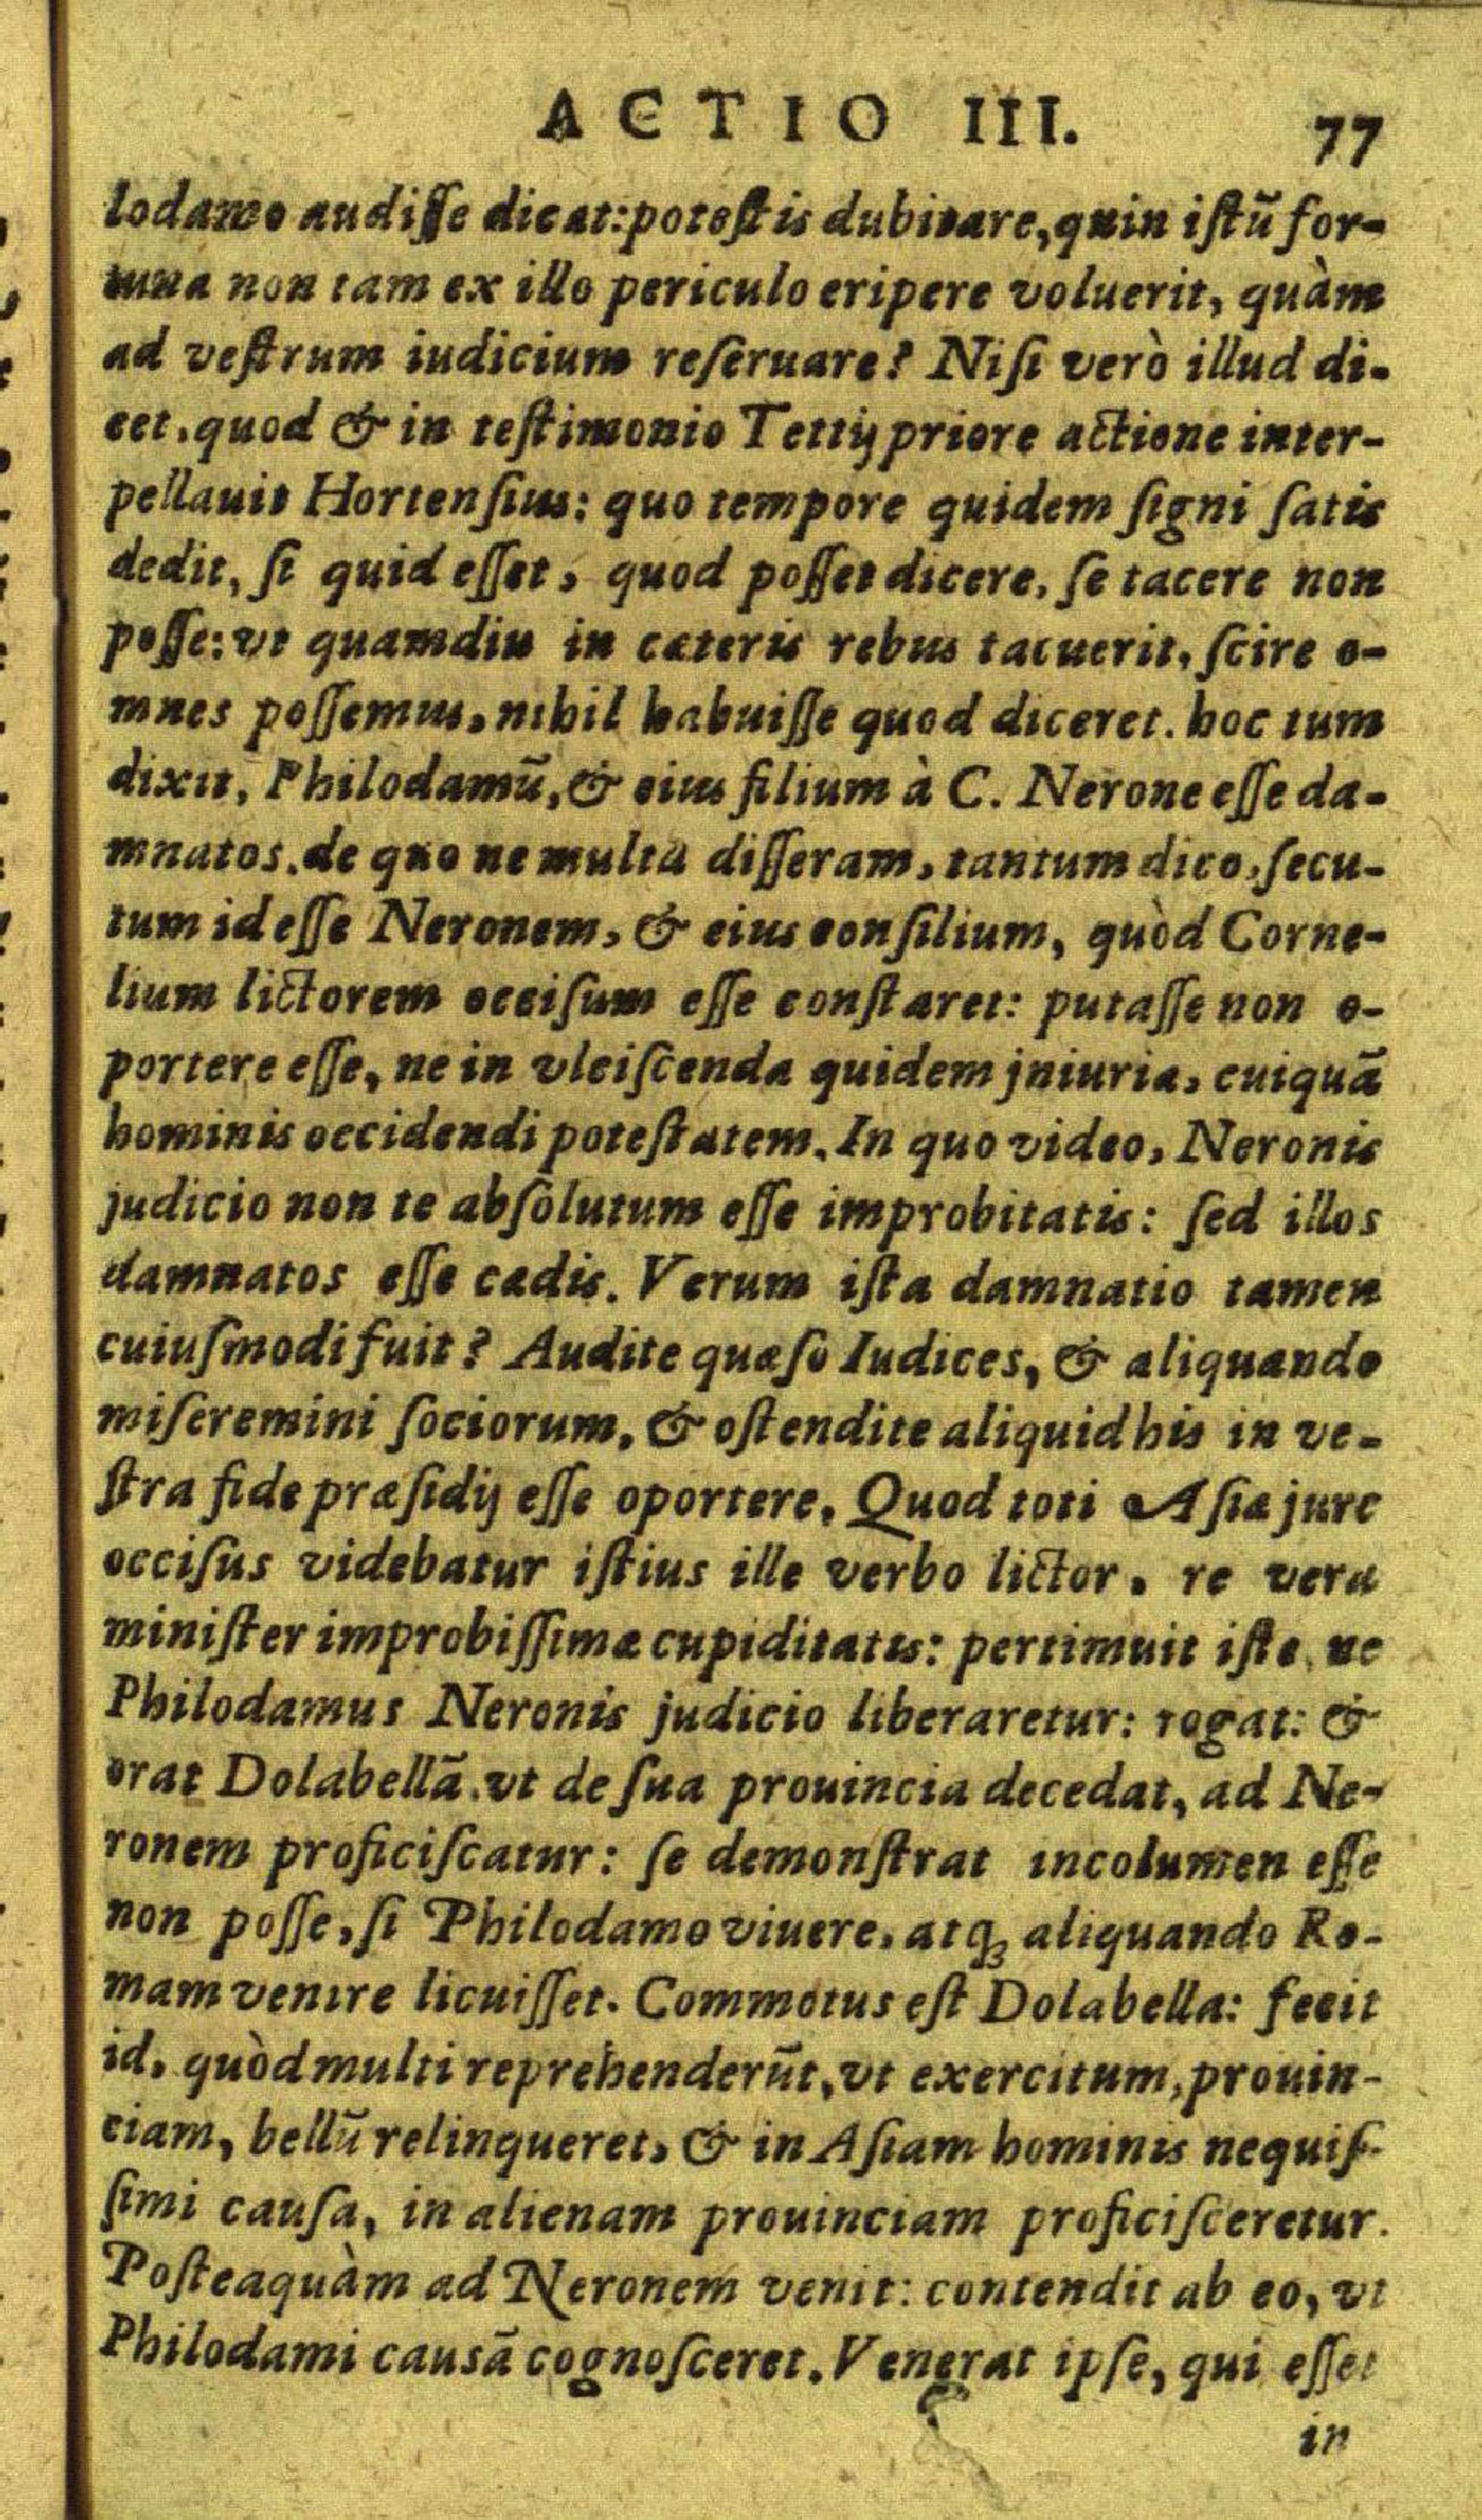 ACTIO III. 77
lodamo audiſſe dicat: poteſtis dubitare, quin iſtũ for-
tuna non tam ex illo periculo eripere voluerit, quàm
ad veſtrum iudicium reſeruare? Niſi verò illud di-
cet. quod & in teſtimonio Tettij priore actione inter-
pellauit Hortenſius: quo tempore quidem ſigni ſatis
dedit, ſi quid eſſet, quod poſſet dicere, ſe tacere non
poſſe: vt quamdiu in cæteris rebus tacuerit, ſcire o-
mnes poſſemus, nihil habuiſſe quod diceret. hoc tum
dixit, Philodamũ, & eius filium à C. Nerone eſſe da-
mnatos. de quo ne multa diſſeram, tantum dico, ſecu-
tum id eſſe Neronem, & eius conſilium, quòd Corne-
lium lictorem occiſum eſſe conſtaret: putaſſe non o-
portere eſſe, ne in vlciſcenda quidem jniuria, cuiquã
hominis occidendi poteſtatem. In quo video, Neronis
judicio non te abſolutum eſſe improbitatis: ſed illos
damnatos eſſe cædis. Verum iſta damnatio tamen
cuiuſmodi fuit? Audite quæſo Iudices, & aliquando
miſeremini ſociorum, & oſtendite aliquid his in ve-
ſtra fide præſidij eſſe oportere. Quod toti Aſiæ jure
occiſus videbatur iſtius ille verbo lictor, re vera
miniſter improbiſſimæ cupiditatis: pertimuit iſte, ne
Philodamus Neronis judicio liberaretur: rogat: &
orat Dolabellã. vt de ſua prouincia decedat, ad Ne-
ronem proficiſcatur: ſe demonſtrat incolumen eſſe
non poſſe, ſi Philodamo viuere, atq; aliquando Ro-
mam venire licuiſſet. Commotus eſt Dolabella: fecit
id, quòd multi reprehenderũt, vt exercitum, prouin-
ciam, bellũ relinqueret, & in Aſiam hominis nequiſ-
ſimi cauſa, in alienam prouinciam proficiſceretur.
Poſteaquàm ad Neronem venit: contendit ab eo, vt
Philodami causã cognoſceret. Venerat ipſe, qui eſſet
in